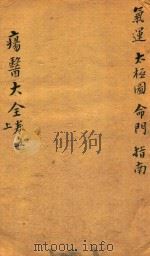 氣運 太極圖 命門 指南
瘍醫大全
上